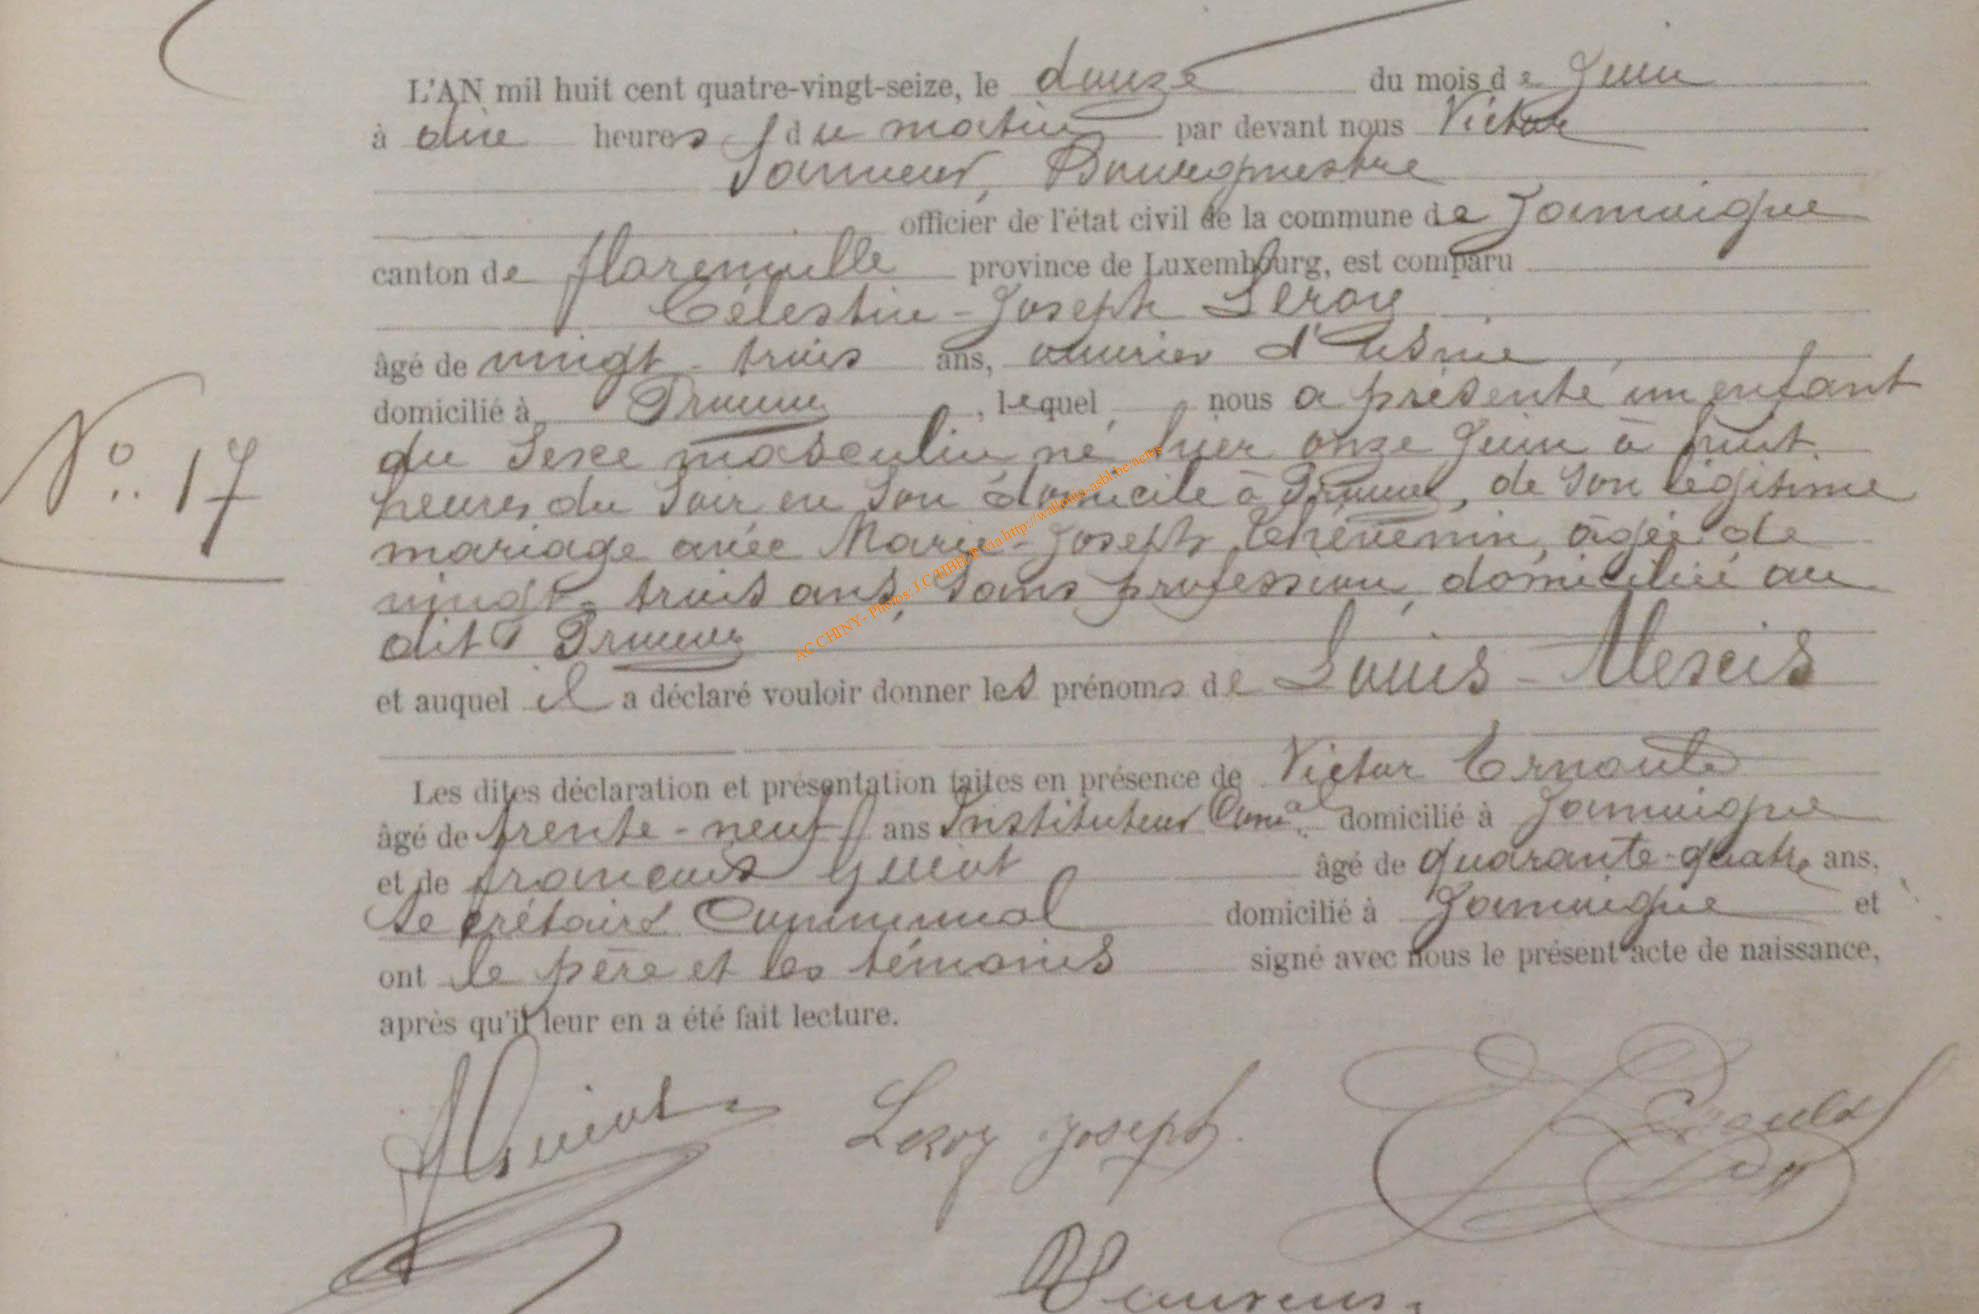 L'AN mil huit cent quatre-vingt-seize, le douze du mois de Juin
à dix heures du matin par devant nous Victor
Bourgmestre
officier de l'état civil de la commune de Jamoigne
canton de florenville province de Luxembourg, est comparu
Célestin-Joseph Leroy
âgé de vingt-trois ans, ouvrier d'usine,
domicilié à Prouvy, lequel nous a présenté un enfant
du Sexe masculin né hier onze Juin à huit
heures du soir en son domicile à Prouvy, de son légitime
mariage avec Marie-Joseph Thévenin, âgée de
vingt-trois ans, sans profession, domiciliée au
dit Prouvy
et auquel il a déclaré vouloir donner les prénoms de Louis-Alexis
Les dites déclaration et présentation faites en présence de Victor
âgé de trente-neuf ans Instituteur Comal domicilié à Jamoigne
et de françois Guiot âgé de quarante-quatre ans,
secrétaire Communal domicilié à Jamoigne et
ont le père et les témoins signé avec nous le présent acte de naissance,
après qu'il leur en a été fait lecture.
No. 17
AC CHINY - Photos via http://wallonia-asbl.be/actes
Guiot
Leroy Joseph